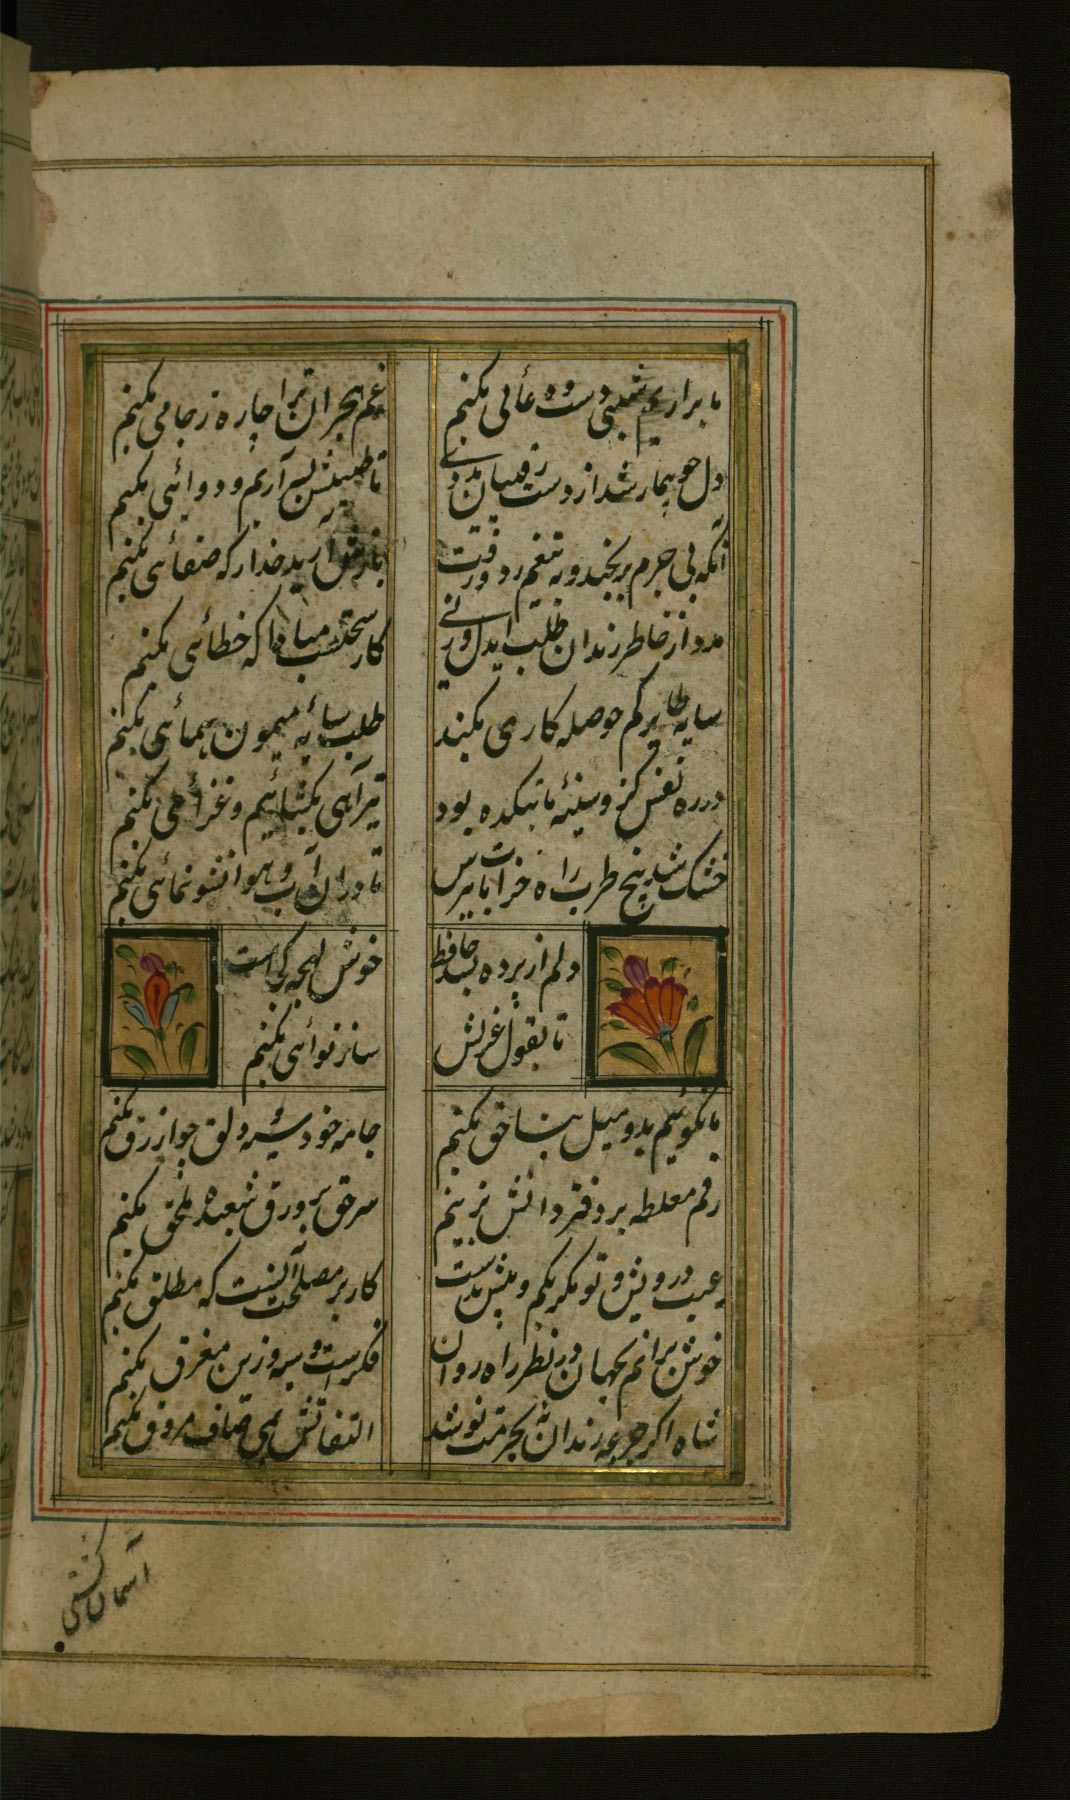 ما برآریم شبی دست و دعائی بکنیم
غم هجران ترا چاره ز جائی بکنیم
دل چو بیمار شد از دست رفیقان مددی
تا طبیبش بسر آریم و دوائی بکنیم
آنکه بی جرم برنجید و به تیغم زد و رفت
بازش آرید خدا را که صفائی بکنیم
مدد از خاطر رندان طلب ایدل ورنی
کار سختست مبادا که خطائی بکنیم
سایه طایر کم حوصله کاری نکند
طلب سایه میمون همائی بکنیم
در ره نفس کزو سینه ما بتکده بود
تیر آهی بکشائیم و غزائی بکنیم
خشک شد بیخ طرب راه خرابات بپرس
تا در ان آب و هوا نشو نمائی بکنیم
دلم از پرده بشد حافظ
خوش لهجه کجاست
تا بقول غزلش
ساز نوائی بکنیم
ما نگوئیم بد و میل بنا حق نکنیم
جامه خود سیه و دلق خود ازرق نکنیم
رقم مغلطه بر دفتر دانش نزنیم
سر حق بر ورق شعبده ملحق نکنیم
عیب درویش و تونگر بکم و بیش بدست
کار بد مصلحت آنست که مطلق نکنیم
خوش برانیم جهان در نظر راه روان
فکر اسب سیه و زین مغرق نکنیم
شاه اگر جرعه رندان نه بحرمت نوشد
التفاتش بمی صاف مروق نکنیم
آسمان کشتی